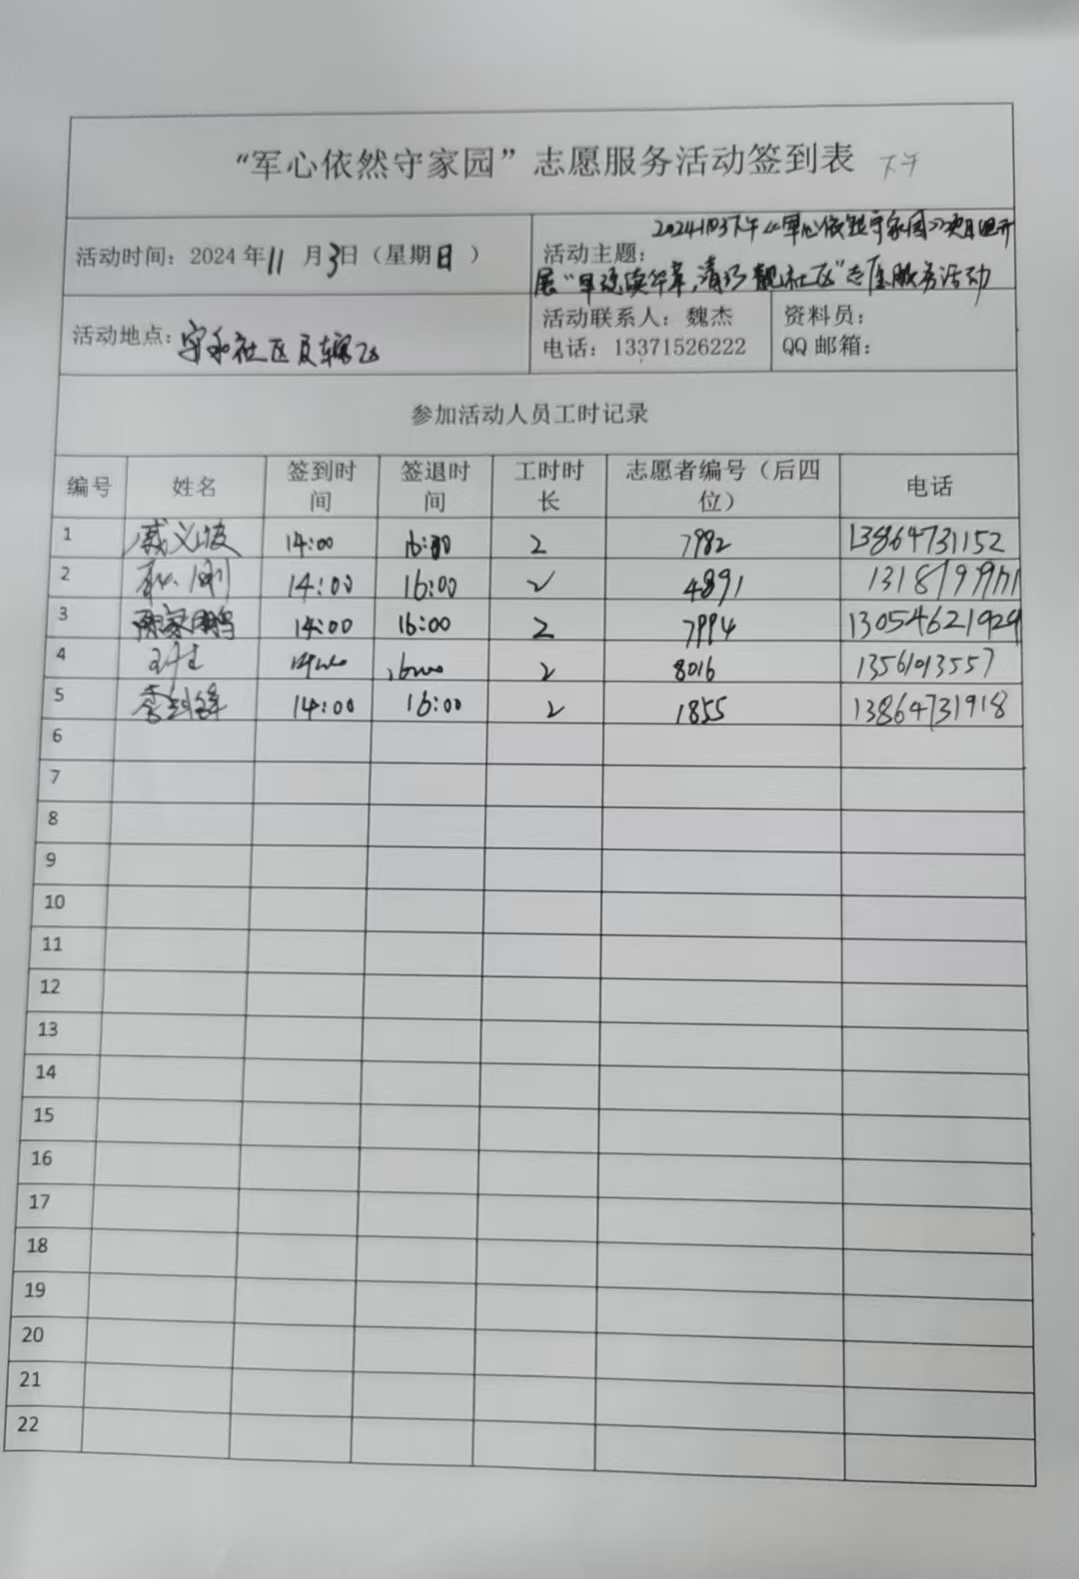 “军心依然守家园”志愿服务活动签到表 下午
活动时间：2024年11月3日（星期日）
活动主题：2024.11.03下午《军心依然守家园》项目组开
展“ 清 靓社区”志愿服务活动
活动地点： 社区及辖区
活动联系人：魏杰
电话：13371526222
资料员：
QQ邮箱：
参加活动人员工时记录
编号 姓名 签到时间 签退时间 工时时长 志愿者编号（后四位） 电话
1 14:00 16:00 2 7982 13864731152
2 14:00 16:00 2 4891
3 14:00 16:00 2 7994 13054621929
4 14:00 16:00 2 8016 13561013557
5 14:00 16:00 2 1855 13864731918
6
7
8
9
10
11
12
13
14
15
16
17
18
19
20
21
22